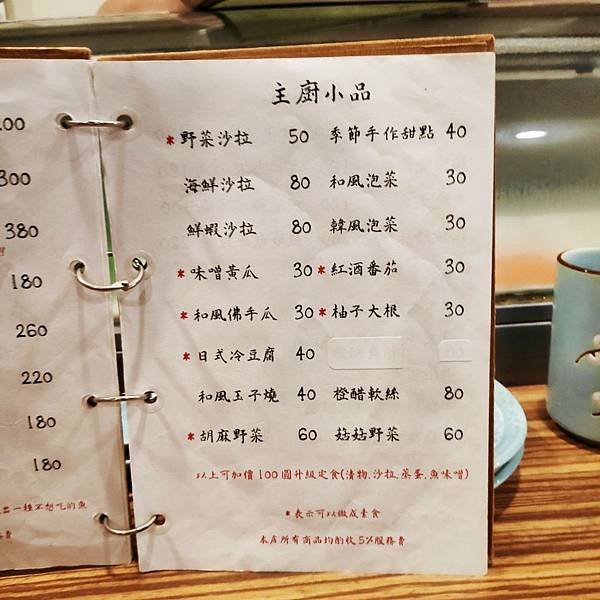 200
300
380
180
260
220
180
180
出一種不想吃的魚
務費
主廚小品
*野菜沙拉 50 季節手作甜點 40
海鮮沙拉 80 和風泡菜 30
鮮蝦沙拉 80 韓風泡菜 30
*味噌黃瓜 30 *紅酒番茄 30
*和風佛手瓜 30 *柚子大根 30
*日式冷豆腐 40
和風玉子燒 40 橙醋軟絲 80
*胡麻野菜 60 菇菇野菜 60
以上可加價100圓升級定食(漬物.沙拉.蒸蛋.魚味噌)
*表示可以做成素食
本店所有商品均酌收5%服務費